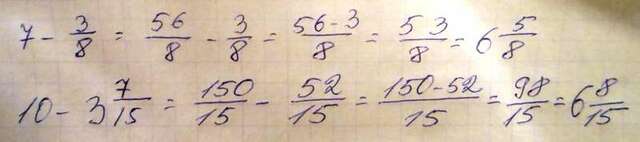 7 - 3/8 = 56/8 - 3/8 = 56-3/8 = 53/8 = 6 5/8
10 - 3 7/15 = 150/15 - 52/15 = 150-52/15 = 98/15 = 6 8/15